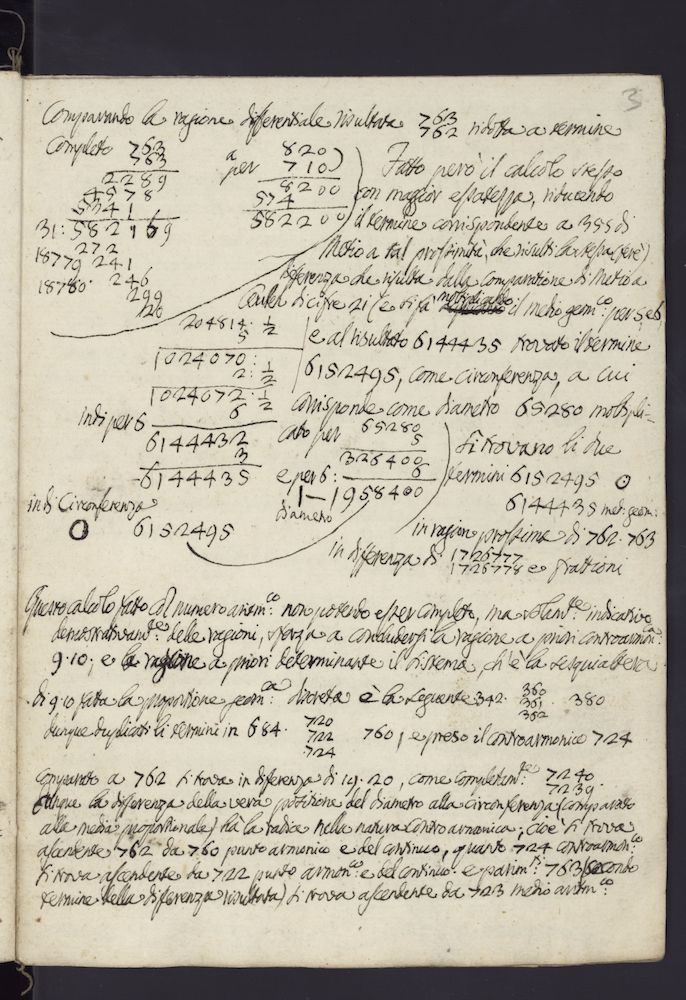 3
Comparando la ragione differenziale risultata 763 ridotta a termine
762
completo 763
363
2289
4578
5341
31: 582169
272
18779 241
18780. 246
299
20
a 820
per 710
8200
574
582200
Fatto però il calcolo stesso
con maggior esatezza, riducendo
il termine corrispondente a 355 di
Metio a tal prossimità, che risulti la stessa
differenza che risulta dalla comparazione di Metio a
Ceulen di cifre 21 (e si fa moltiplicando il medio geom.co per 5, e 6
204814: 1/2
5
1024070:
2: 1/2
1024072: 1/2
indi per 6 6
6144432
3
6144435
e al risultato 6144435 trovato il termine
6152495, come circonferenza, a cui
corrisponde come diametro 65280 moltipli-
cato per 65280
5
326400
e per 6: 6
1—1958400
diametro
indi Circonferenza
O 6152495
si trovano li due
termini 6152495 O
6144435 med: geom:
in ragion prossima di 762. 763
in differenza di 1726777
1726778 e frattioni
Questo calcolo fatto col numero aritm.co non potendo esser completo, ma solam.te indicativo
demostrativam.te delle ragioni, sforza a condubersi la ragione a priori controarmon.
9. 10; e la ragione a priori determinante il sistema, ch'è la sesquialtera
di 9. 10 fatta la proporzione geom.ca discreta è la seguente 342. 360 . 380
361
362
dunque duplicati li termini in 684. 720 760, e preso il controarmonico 724
722
724
comparato a 762 si trova in differenza di 19. 20, come completam.te 7240
7239.
dunque la differenza della vera posizione del diametro alla circonferenza (comparato
alla media proporzionale) ha la radice nella natura controarmonica, cioè si trova
ascendente 762 da 760 punto armonico e del continuo, quanto 724 controarmon.co
si trova ascendente da 722 punto armon.co e del continuo. e parim.ti 763 (secondo
termine della differenza risultata) si trova ascendente da 723 medio aritm.co